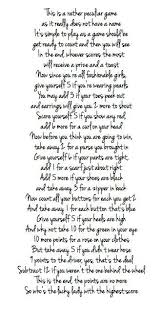 This is a rather peculiar game
as it really does not have a name
It's simple to play as a game should be
get ready to count and then you will see
In the end, whoever scores the most
will receive a prize and a toast
Now since you're all fashionable girls,
give yourself 5 if you're wearing pearls
You may add 5 if your toes peek out
and earrings will give you 2 more to shout
Score yourself 5 if you show any red
add 6 more for a curl on your head
Now before you think you are going to win,
take away 2 for a purse you brought in
Give yourself 4 if your pants are tight,
add 1 for a scarf just about right
Add 5 more if your shoes are black
and take away 3 for a zipper in back
Now count all your buttons for each you get 2
And take away 1 for each button that's blue
Give yourself 5 if your heels are high
And why not take 10 for the green in your eye
10 more points for a rose on your clothes
But take away 5 if you didn't wear hose
7 points to the driver, yes, that's the deal
Subtract 12 if you weren't the one behind the wheel
This is the end the points are no more
So who's the lucky lady with the highest score